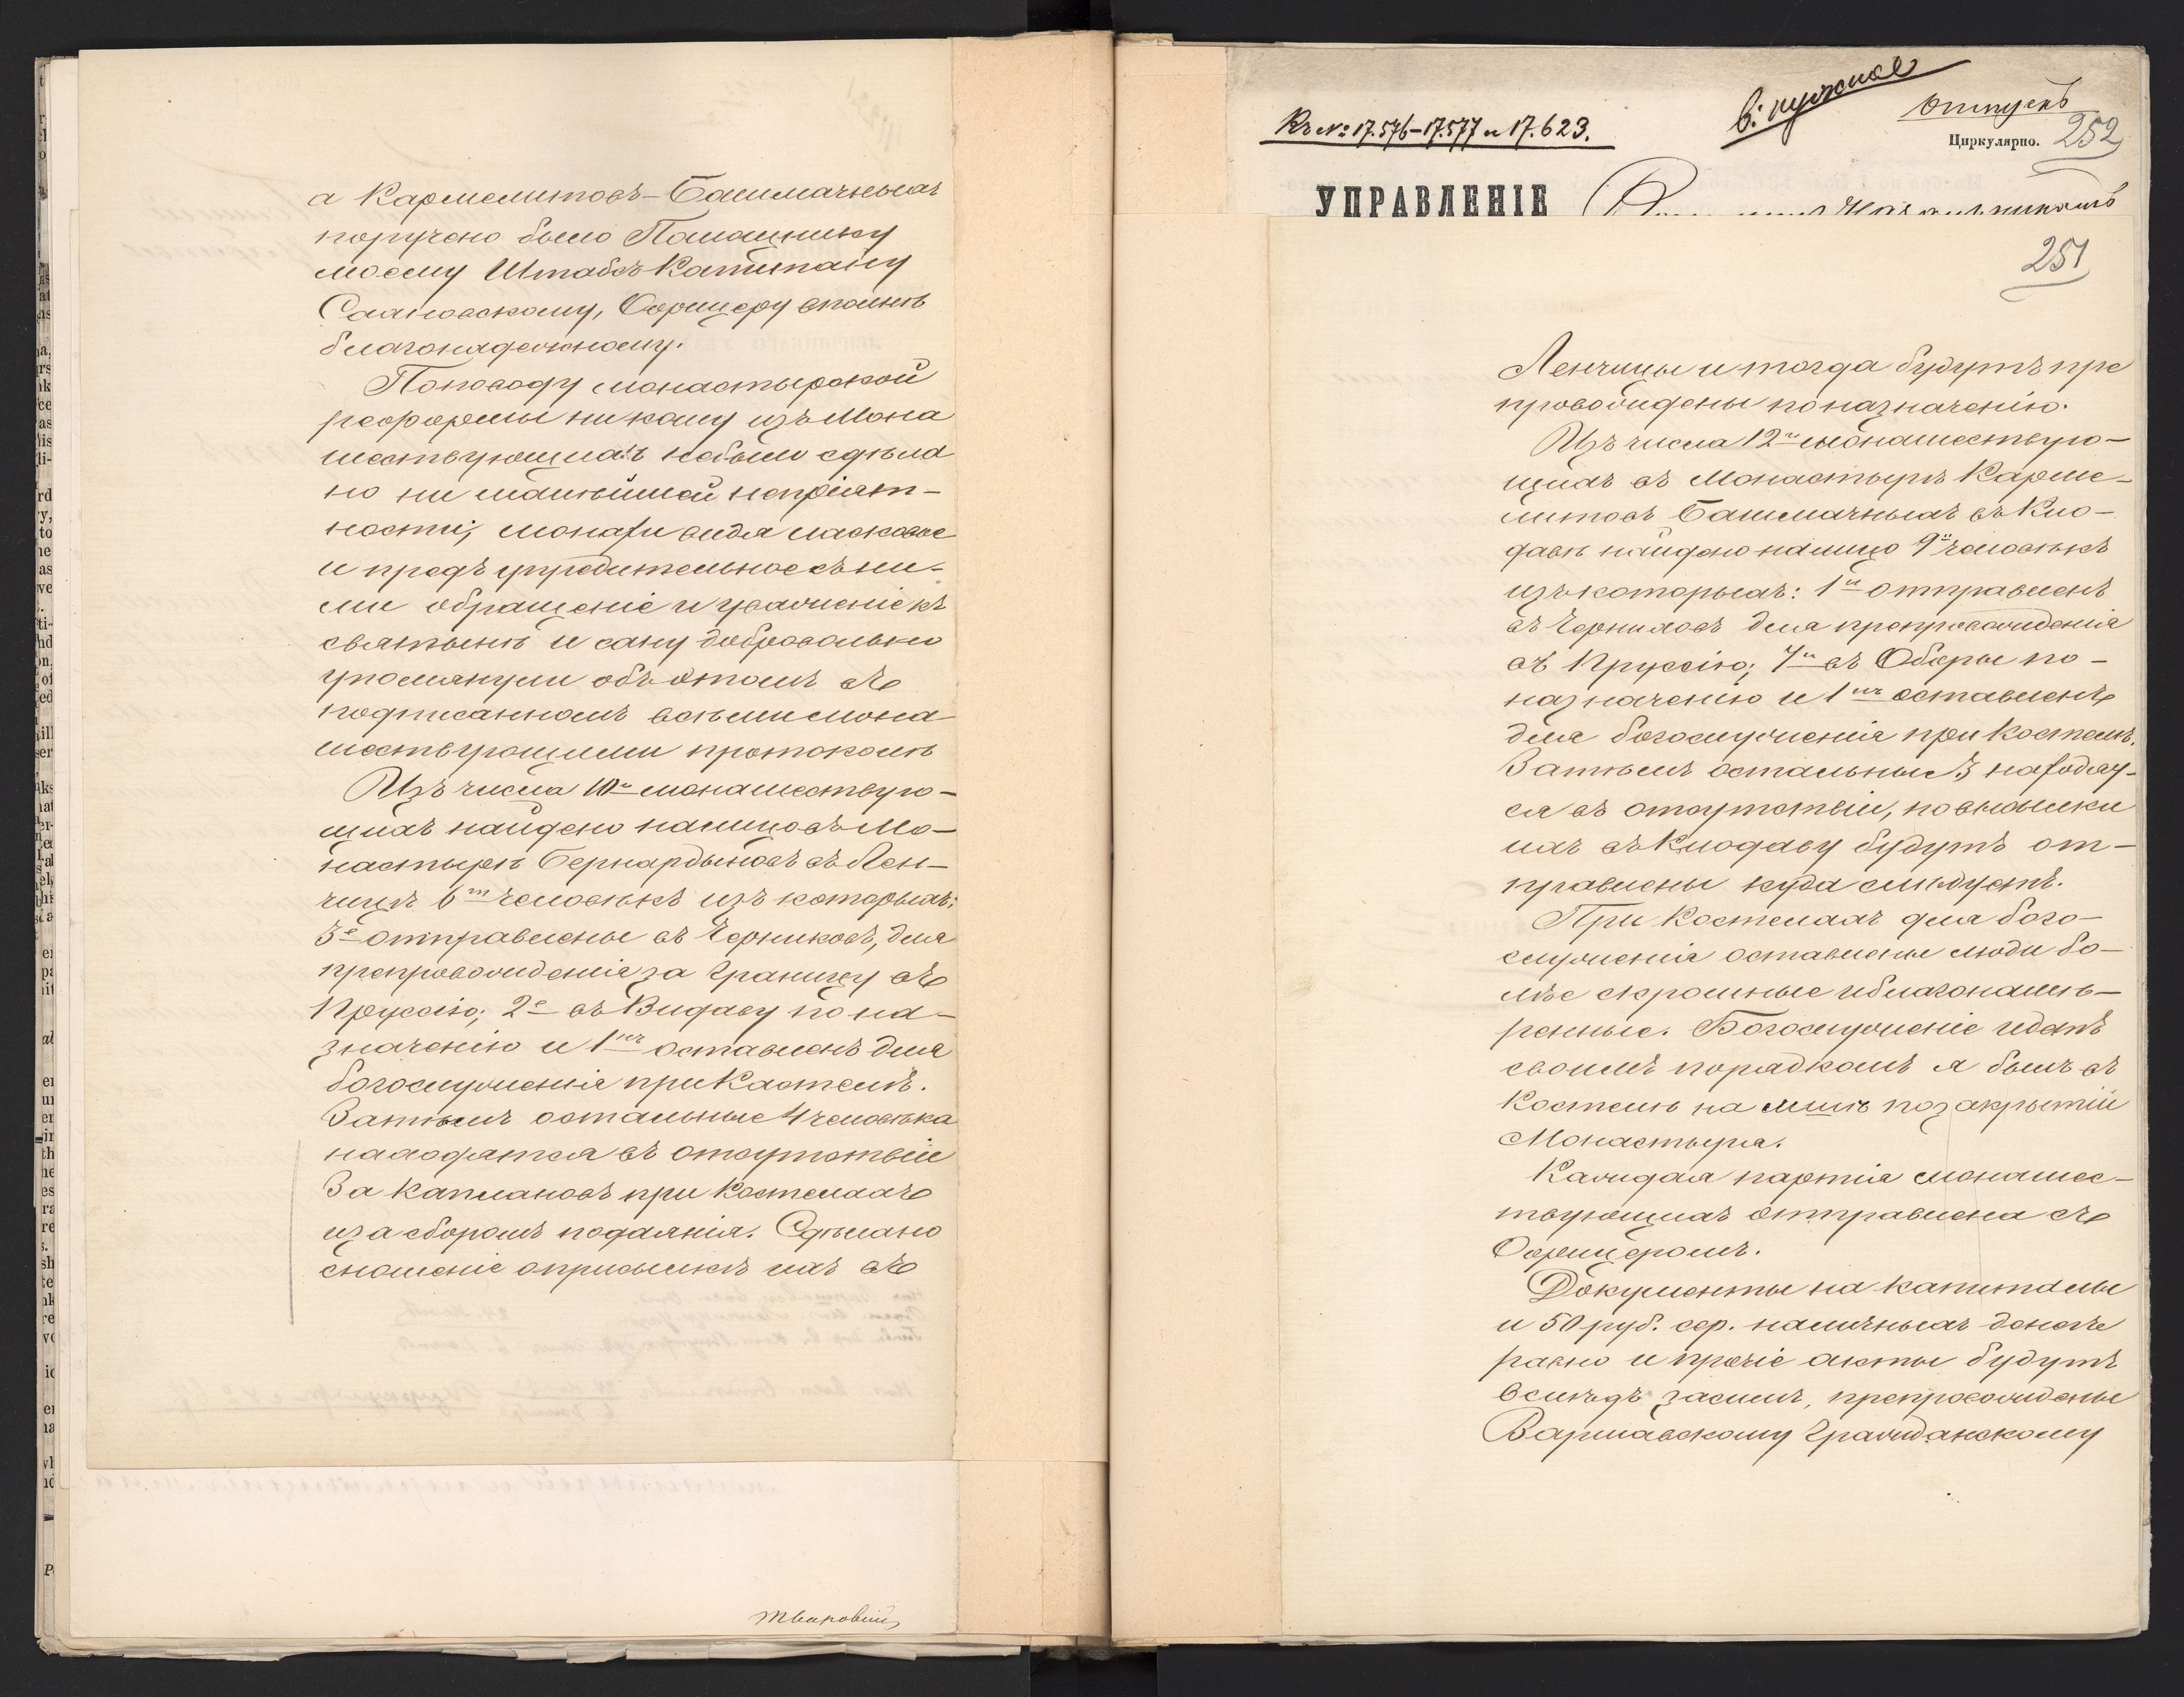 а Кармелитовъ-Башмачныхъ
поручено было Помощнику
моему Штабсъ Капитану
Офицеру вполнѣ
благонадежному.
Поповоду монастырской
реформы ни кому изъ Мона
шествующихъ небыло сдѣла
но ни малѣйшей непріят-
ности; монахи видя ласковое
и предъупредительное съ ни-
ми обращеніе и уваженіе къ
святынѣ и сану добровольно
упомянули объ этомъ въ
подписанномъ всѣми мона
шествующими протоколѣ
Изъ числа 10и монашествую-
щихъ найдено налицо въ Мо-
настырѣ Бернардыновъ въ Лен-
чицѣ 6ть человѣкъ изъ которыхъ:
3е отправлены въ Черниковъ, для
препровожденія за границу въ
Пруссію; 2е въ Видаву по на-
значенію и 1нъ оставленъ для
богослуженія при Костелѣ.
Затѣмъ остальные 4 человѣка
находятся въ отсутствіи
За капланов при костелахъ
и за сборомъ подаянія. Сдѣлано
сношеніе о присылкѣ ихъ въ
Къ № 17.576-17.577 и 17.623.
в: нужное
Отпускъ
Циркулярно. 252
УПРАВЛЕНІЕ
251
Ленчицы и тогда будутъ пре
провождены по назначенію.
Изъ числа 12и монашествую-
щихъ въ Монастырѣ Карме-
литовъ Башмачныхъ въ Кло-
давѣ найдено налицо 9и человѣкъ
изъ которыхъ: 1и отправленъ
въ Черниковъ для препровожденія
въ Пруссію; 7и въ Оборы по-
назначенію и 1нъ оставленъ
для богослуженія при костелѣ.
Затѣмъ остальные 3 находят-
ся въ отсутствіи, по высылки
ихъ въ Клодаву будутъ от-
правлены куда слѣдуетъ.
При Костелахъ для бого-
служенія оставлены люди бо-
лѣе скромные и благонамѣ-
ренные. Богослуженіе идетъ
своимъ порядкомъ я былъ въ
костелѣ на мшѣ по закрытіи
Монастыря.
Каждая партія монашес-
твующихъ отправлена съ
Офицеромъ.
Документы на капиталы
и 50 руб. сер. наличныхъ денегъ
равно и прочіе акты будутъ
вслѣдъ засимъ, препровождены
Варшавскому Гражданскому